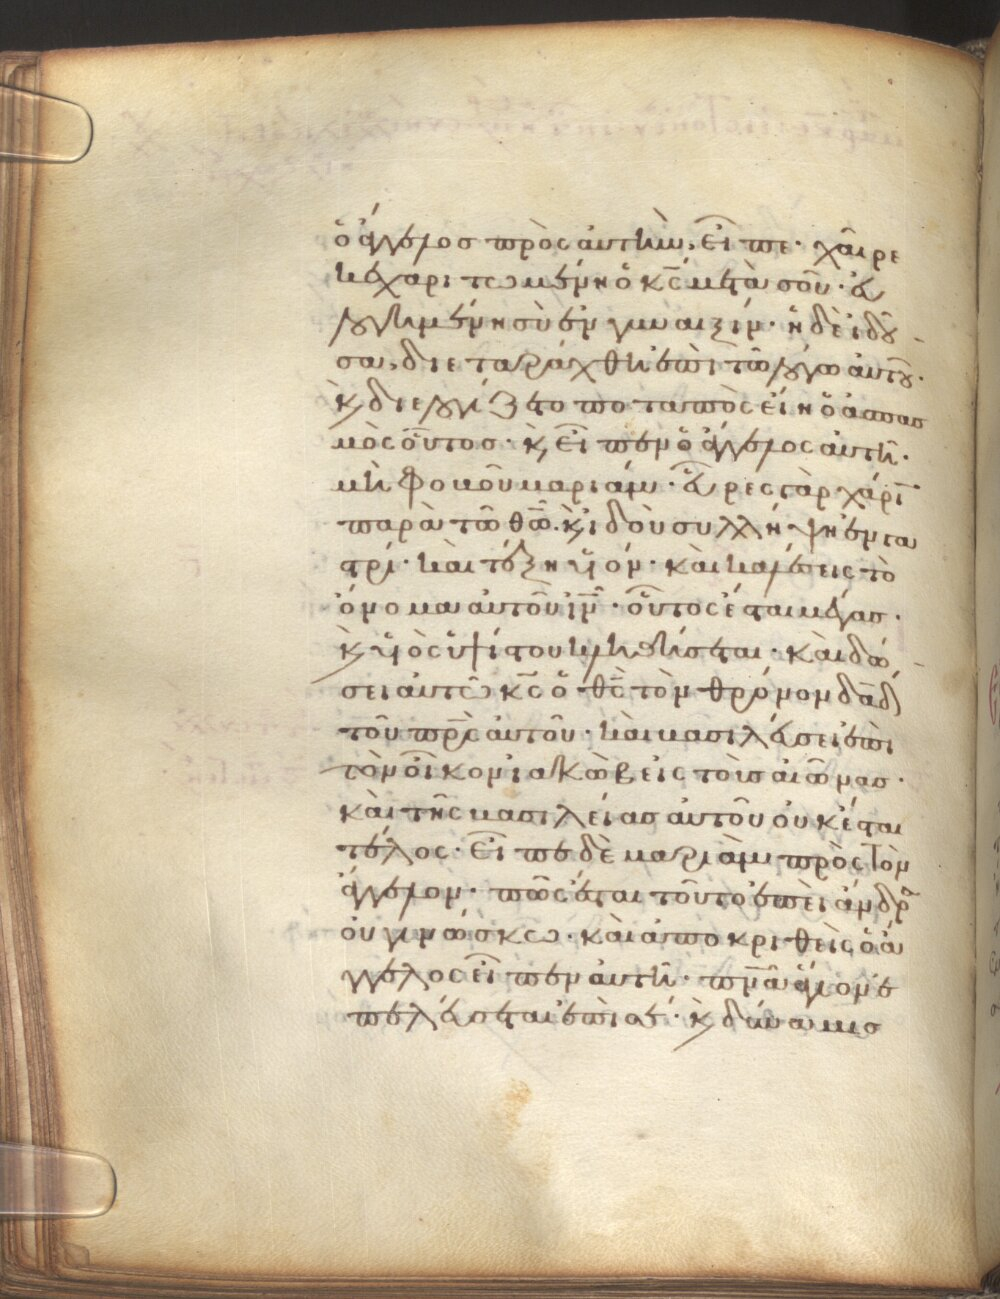 ὁ ἄγγελος πρὸς αὐτὴν, εἶπε· χαῖρε
κεχαριτωμένη ὁ κ̅ς̅ μετὰ σοῦ· εὐ
λογημένη σὺ ἐν γυναιξίν· ἡ δὲ ἰδοῦ
σα, διεταράχθη ἐπὶ τῶ λόγω αὐτοῦ·
κ διελογίζετο ποταπὸς εἴη ὁ ἀσπασ
μὸς οὗτος· κ εἶπεν ὁ ἄγγελος αὐτῆ·
μὴ φοβοῦ μαριάμ· εὗρες γὰρ χάριν
παρὰ τῶ θ̅ω̅· κ ἰδοὺ συλλήψη ἐν γα
στρί· καὶ τέξη υἱόν· καὶ καλέσεις τὸ
ὄνομα αὐτοῦ ι̅ν̅· οὗτος ἔσται μέγας·
κ υἱὸς ὑψίστου κληθήσεται· καὶ δώ
σει αὐτῶ κ̅ς̅ ὁ θ̅ς̅ τὸν θρόνον δ̅α̅δ̅
τοῦ π̅ρ̅ς̅ αὐτοῦ· καὶ βασιλεύσει ἐπὶ
τὸν οἶκον ἰακὼβ εἰς τοὺς αἰῶνας·
καὶ τῆς βασιλείας αὐτοῦ οὐκ ἔσται
τέλος· εἶπε δὲ μαριὰμ πρὸς τὸν
ἄγγελον· πῶς ἔσται τοῦτο ἐπεὶ ἄνδρα
οὐ γινώσκω· καὶ ἀποκριθεὶς ὁ ἄγ
γελος εἶπεν αὐτῆ· π̅ν̅α̅ ἅγιον ἐ
πελεύσεται ἐπὶ σέ· κ δύναμις